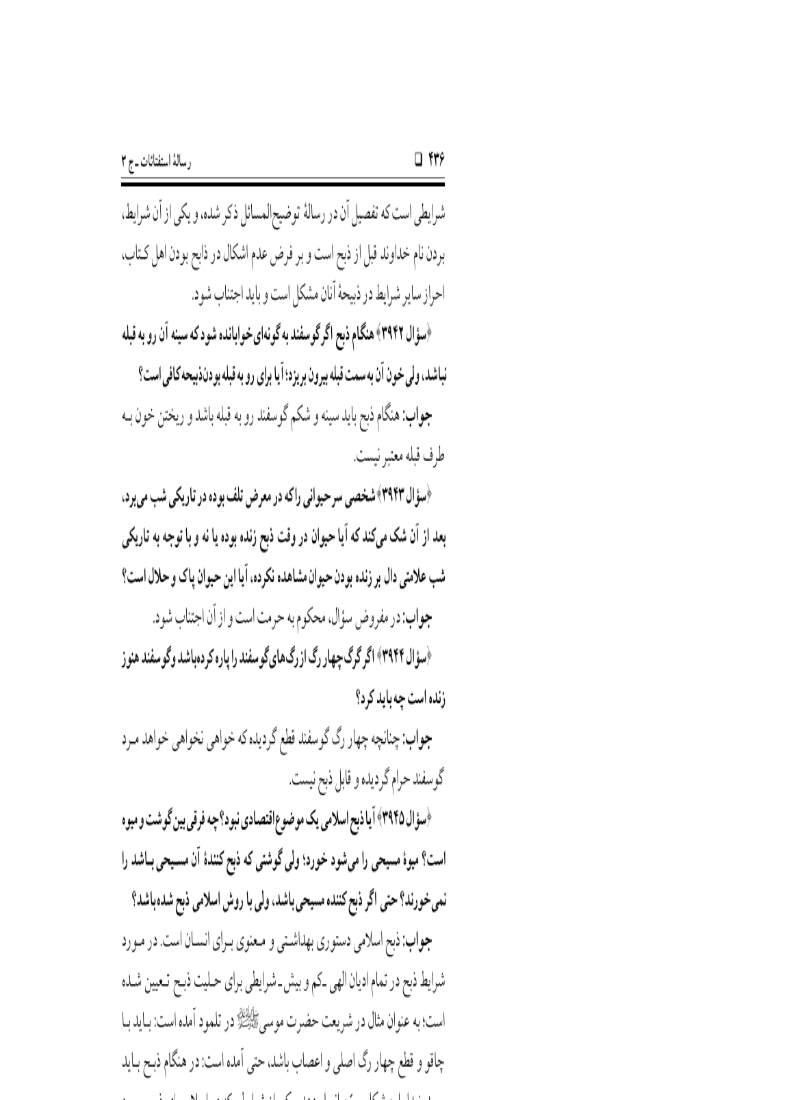 ۴۳۶ ❑ رسالهٔ استفتائات ـ ج ۳
شرایطی است که تفصیل آن در رسالهٔ توضیح‌المسائل ذکر شده، و یکی از آن شرایط،
بردن نام خداوند قبل از ذبح است و بر فرض عدم اشکال در ذابح بودن اهل کتاب،
احراز سایر شرایط در ذبیحهٔ آنان مشکل است و باید اجتناب شود.
﴿سؤال ۳۹۴۲﴾ هنگام ذبح اگر گوسفند به گونه‌ای خوابانده شود که سینه آن رو به قبله
نباشد، ولی خون آن به سمت قبله بیرون بریزد؛ آیا برای رو به قبله بودن ذبیحه کافی است؟
جواب: هنگام ذبح باید سینه و شکم گوسفند رو به قبله باشد و ریختن خون به
طرف قبله معتبر نیست.
﴿سؤال ۳۹۴۳﴾ شخصی سر حیوانی را که در معرض تلف بوده در تاریکی شب می‌برد،
بعد از آن شک می‌کند که آیا حیوان در وقت ذبح زنده بوده یا نه و با توجه به تاریکی
شب علامتی دال بر زنده بودن حیوان مشاهده نکرده، آیا این حیوان پاک و حلال است؟
جواب: در مفروض سؤال، محکوم به حرمت است و از آن اجتناب شود.
﴿سؤال ۳۹۴۴﴾ اگر گرگ چهار رگ از رگ‌های گوسفند را پاره کرده باشد و گوسفند هنوز
زنده است چه باید کرد؟
جواب: چنانچه چهار رگ گوسفند قطع گردیده که خواهی نخواهی خواهد مرد
گوسفند حرام گردیده و قابل ذبح نیست.
﴿سؤال ۳۹۴۵﴾ آیا ذبح اسلامی یک موضوع اقتصادی نبود؟ چه فرقی بین گوشت و میوه
است؟ میوهٔ مسیحی را می‌شود خورد؛ ولی گوشتی که ذبح کنندهٔ آن مسیحی باشد را
نمی‌خورند؟ حتی اگر ذبح کننده مسیحی باشد، ولی با روش اسلامی ذبح شده باشد؟
جواب: ذبح اسلامی دستوری بهداشتی و معنوی برای انسان است. در مورد
شرایط ذبح در تمام ادیان الهی ـ کم و بیش ـ شرایطی برای حلیت ذبح تعیین شده
است؛ به عنوان مثال در شریعت حضرت موسی در تلمود آمده است: باید با
چاقو و قطع چهار رگ اصلی و اعصاب باشد، حتی آمده است: در هنگام ذبح باید